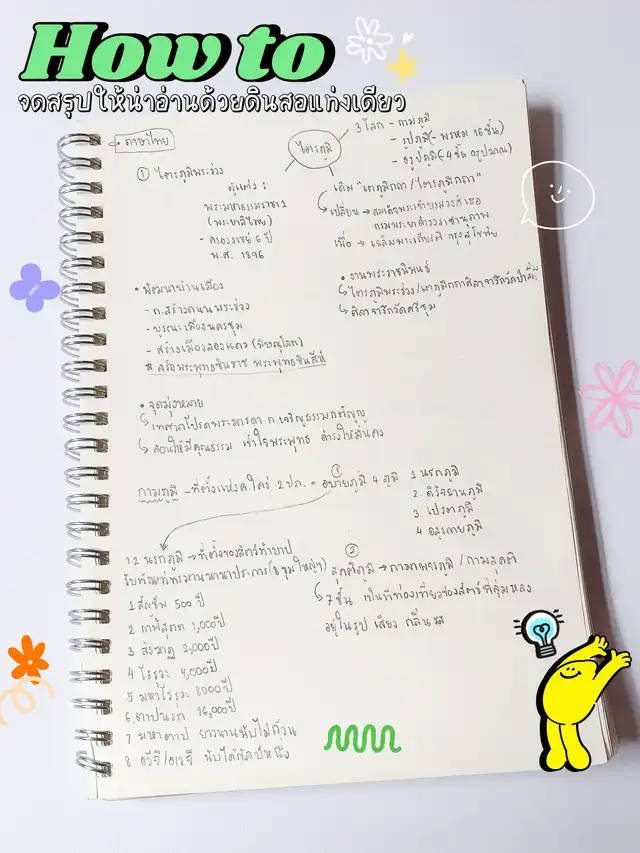 How to
จดสรุปให้น่าอ่านด้วยดินสอแท่งเดียว
• ภาษาไทย
ไตรภูมิ
3 โลก - กามภูมิ
- รูปภูมิ (- พรหม 16 ชั้น)
- อรูปภูมิ (- 4 ชั้น อรูปวภพ)
① ไตรภูมิพระร่วง
ผู้แต่ง :
พระมหาธรรมราชา 1
(พระยาลิไทย)
- ครองราชย์ 6 ปี
พ.ศ. 1896
เดิม "เตภูมิกถา / ไตรภูมิกถา"
เปลี่ยน → สมเด็จพระเจ้าบรมวงศ์เธอ
กรมพระยาดำรงราชานุภาพ
เพื่อ → เฉลิมพระเกียรติ กรุงสุโขทัย
• งานพระราชนิพนธ์
ไตรภูมิพระร่วง / เตภูมิกถา ศิลาจารึกวัดป่า
ศิลาจารึกวัดศรีชุม
• พัฒนาบ้านเมือง
- ก.สร้างถนนพระร่วง
- บูรณะเมืองนครชุม
- สร้างเมืองสองแคว (พิษณุโลก)
* สร้างพระพุทธชินราช พระพุทธชินสีห์
• จุดมุ่งหมาย
เทศนาโปรดพระมารดา ก.เจริญธรรมกตัญญู
สอนให้มีคุณธรรม เข้าใจพระพุทธ ดำรงให้มั่นคง
กามภูมิ - ที่ตั้งแห่งค.ใคร่ 2 ปภ. = อบายภูมิ 4 ภูมิ
①
1 นรกภูมิ
2. ดิรัจฉานภูมิ
3 เปรตภูมิ
4 อสุรกายภูมิ
1.2 นรกภูมิ → ที่ตั้งของสัตว์ทำบาป
รับทัณฑ์ทรมานนานาประการ (8 ขุมใหญ่ๆ)
1 สัญชีพ 500 ปี
2 กาฬสุตต 1,000 ปี
3 สังฆาฏ 2,000 ปี
4 โรรุวะ 4,000 ปี
5 มหาโรรุวะ 8000 ปี
6. ตาปนรก 16,000 ปี
7 มหาตาป ยาวนานนับไม่ถ้วน
8 อวีจี / อเวจี นับได้กัลป์หนึ่ง
②
สุคติภูมิ → กามาพจรภูมิ / กามสุคติ
7 ชั้น เป็นที่ท่องเที่ยวของสัตว์ที่ลุ่มหลง
อยู่ในรูป เสียง กลิ่น รส